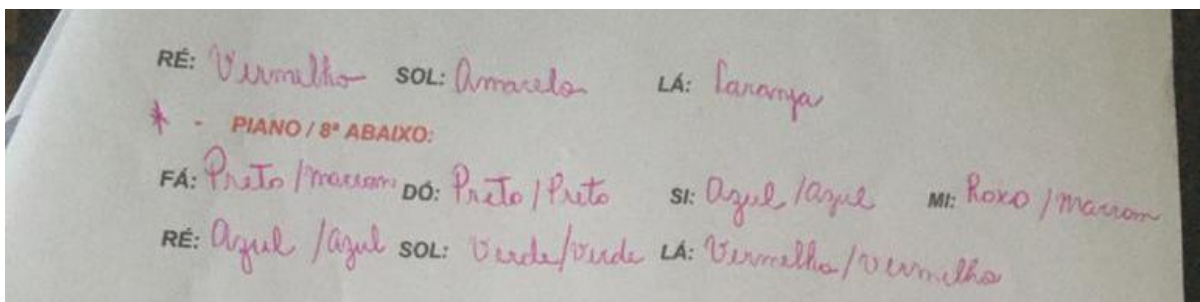 RÉ: Vermelho SOL: Amarelo LÁ: Laranja
* - PIANO / 8ª ABAIXO:
FÁ: Preto / marrom DÓ: Preto / Preto SI: Azul / azul MI: Roxo / marrom
RÉ: Azul / azul SOL: Verde / verde LÁ: Vermelho / vermelho